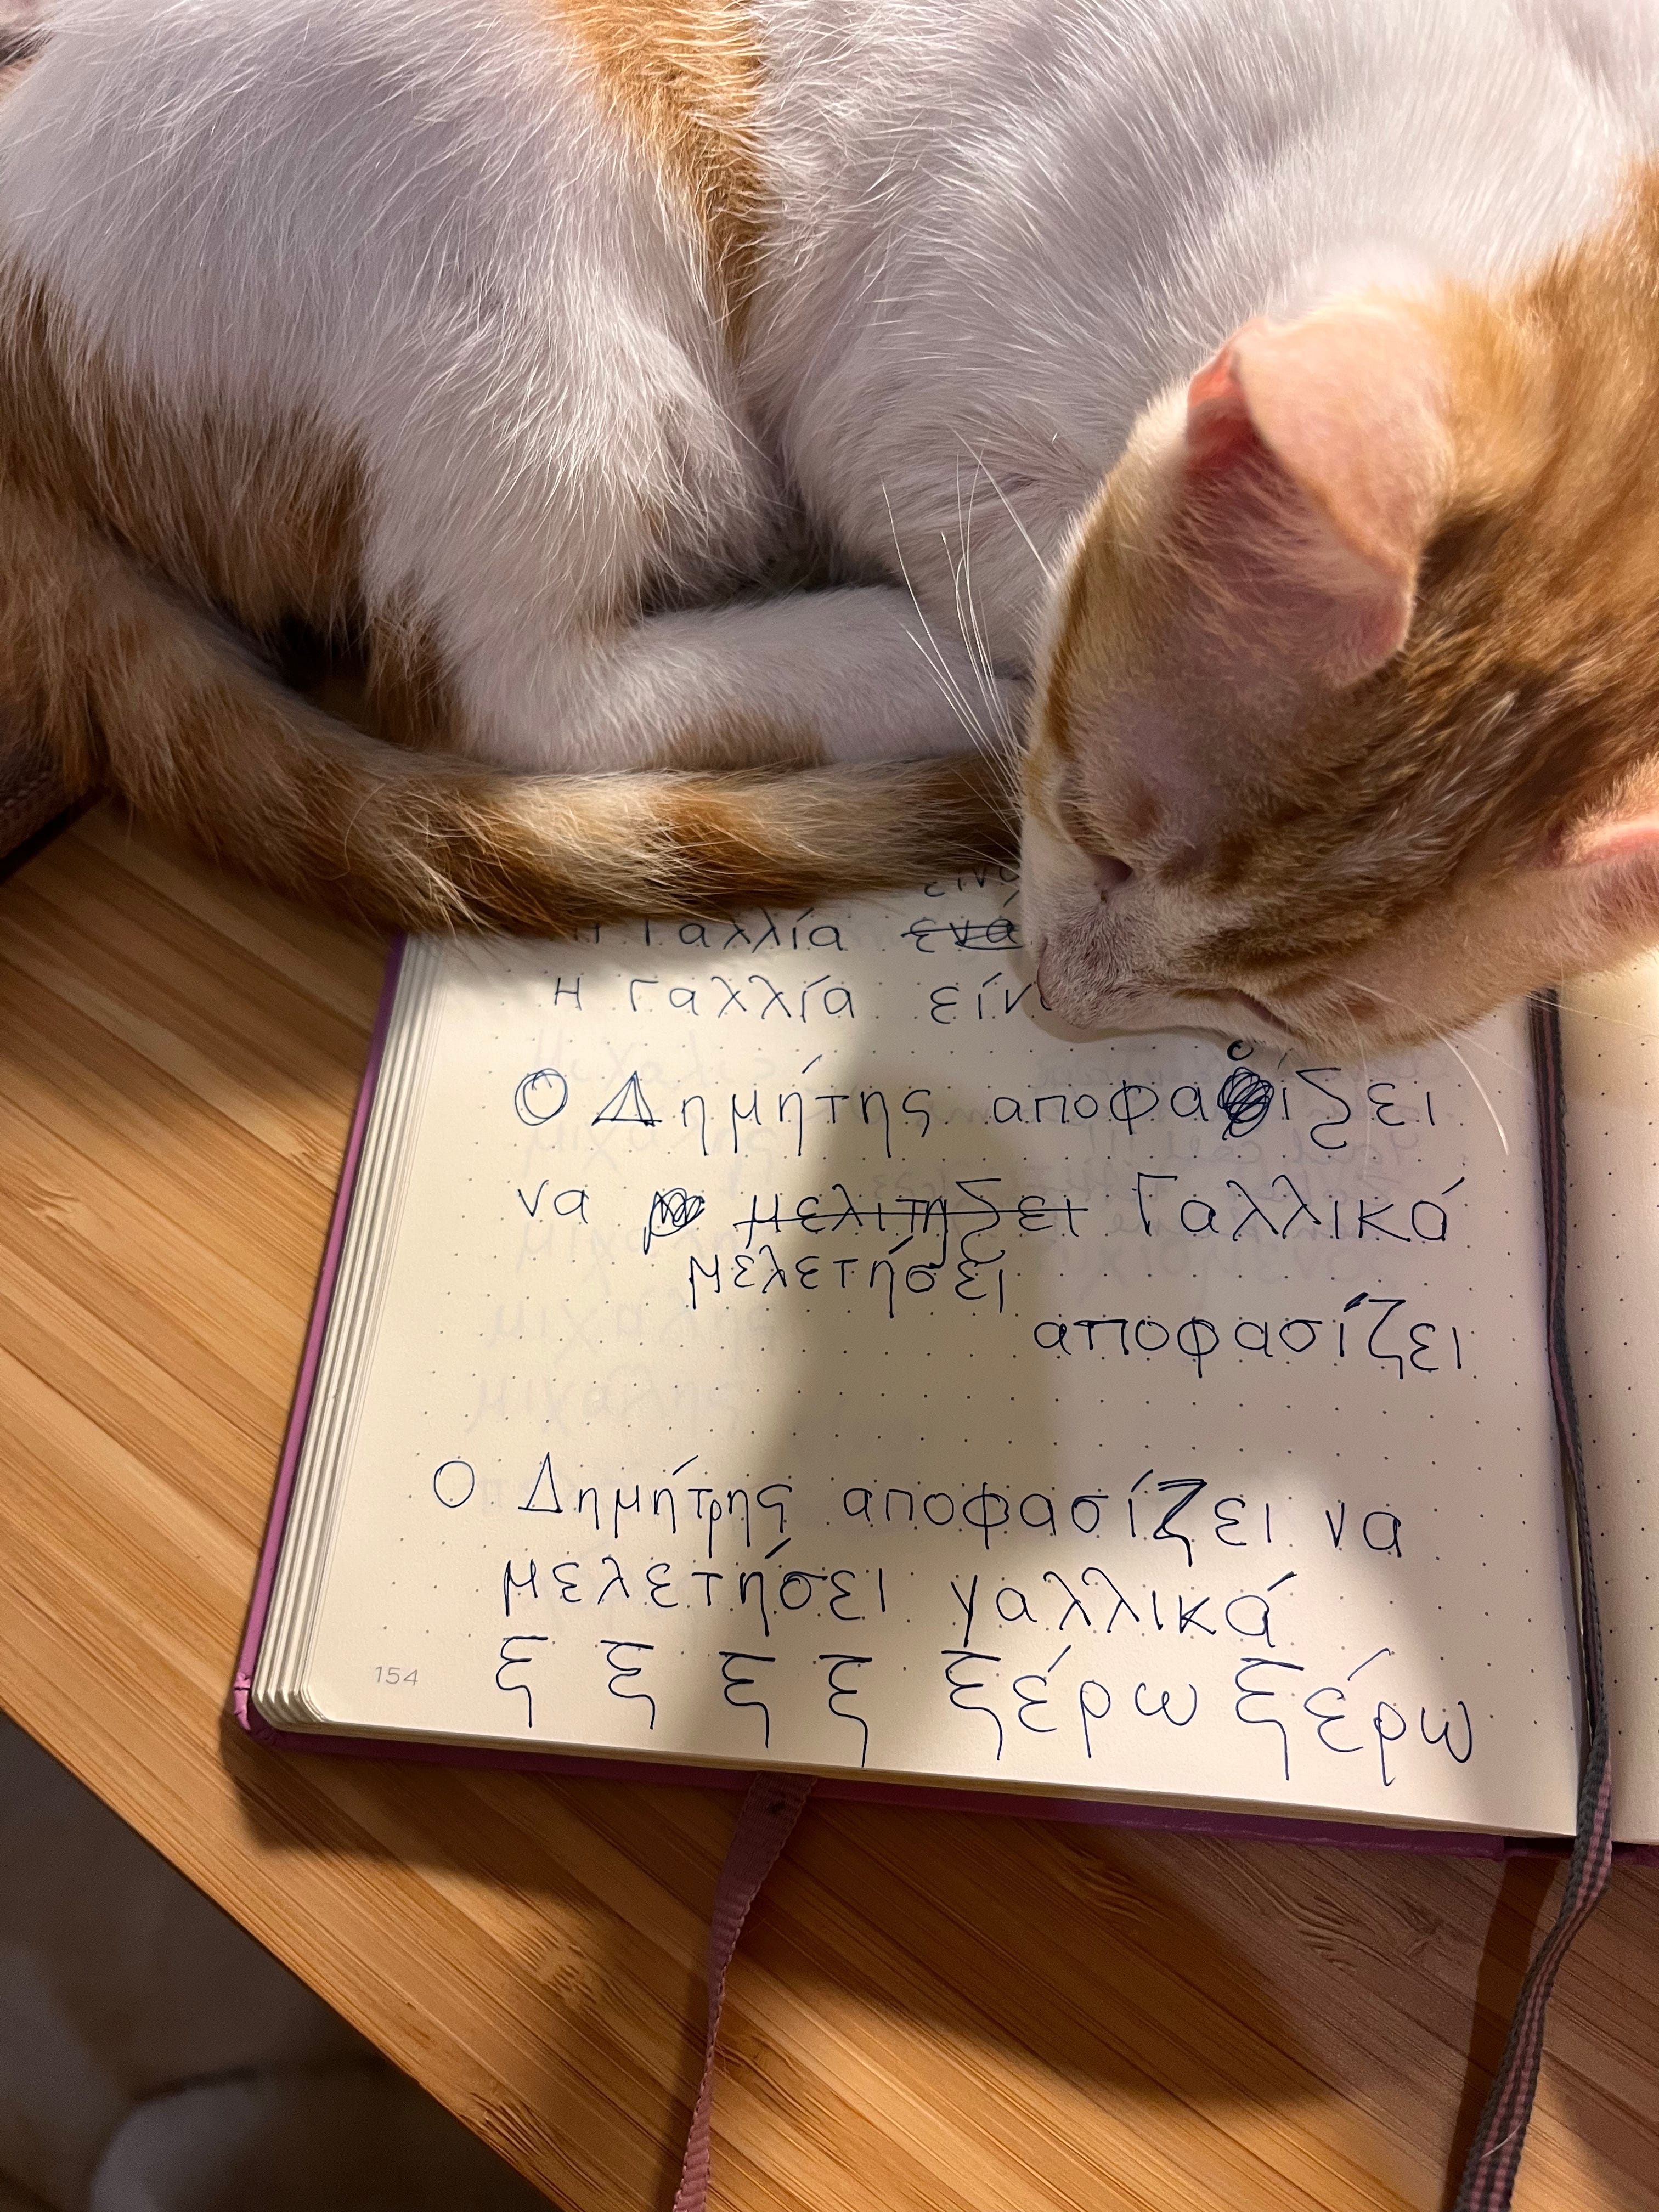 Η Γαλλία
Η Γαλλία
Ο Δημήτης αποφασίζει
να Γαλλικά
μελετήσει
αποφασίζει
Ο Δημήτρης αποφασίζει να
μελετήσει γαλλικά
ξ ξ ξ ξ ξέρω ξέρω
154